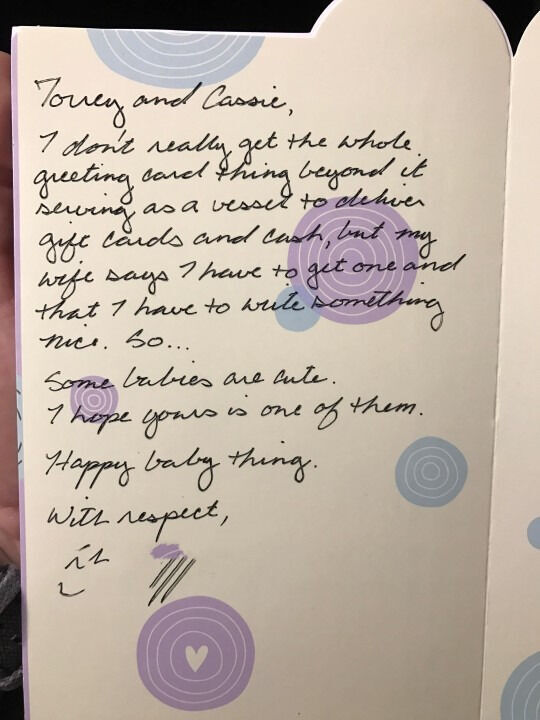 Torrey and Cassie,
I don't really get the whole
greeting card thing beyond it
serving as a vessel to deliver
gift cards and cash, but my
wife says I have to get one and
that I have to write something
nice. So...
Some babies are cute.
I hope yours is one of them.
Happy baby thing.
With respect,